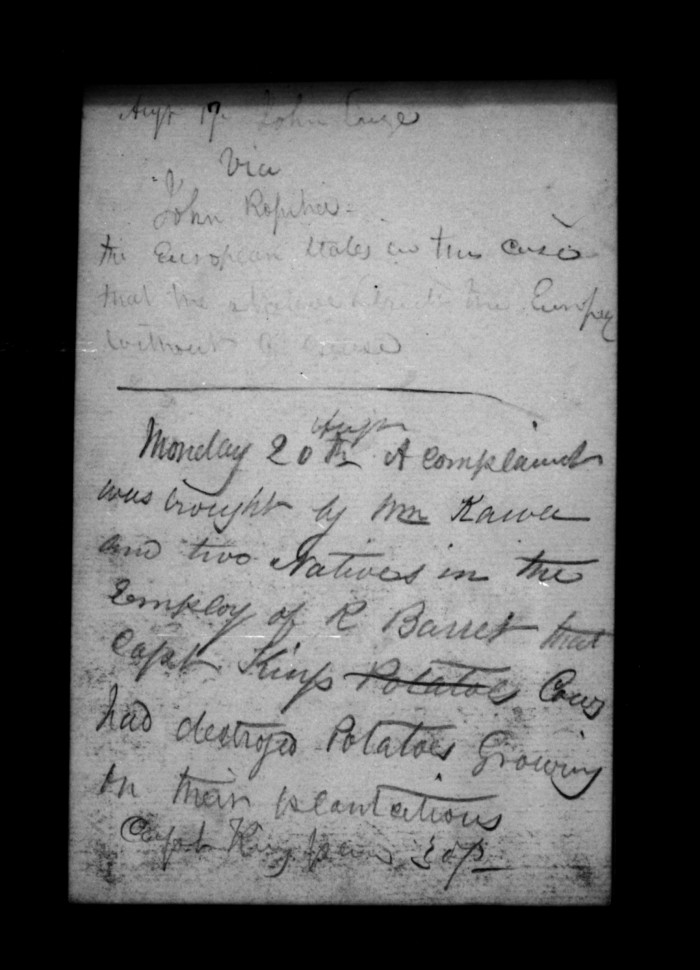 Augt 17 John
Via
John
the European States in this case
that the the Europe
without a cause
Augt
Monday 20th A complaint
was brought by Wm Kawa
and two Natives in the
Employ of R Barret that
Capt Kings Potatoes Cows
had destroyed Potatoes Growing
on their plantations
Capt King